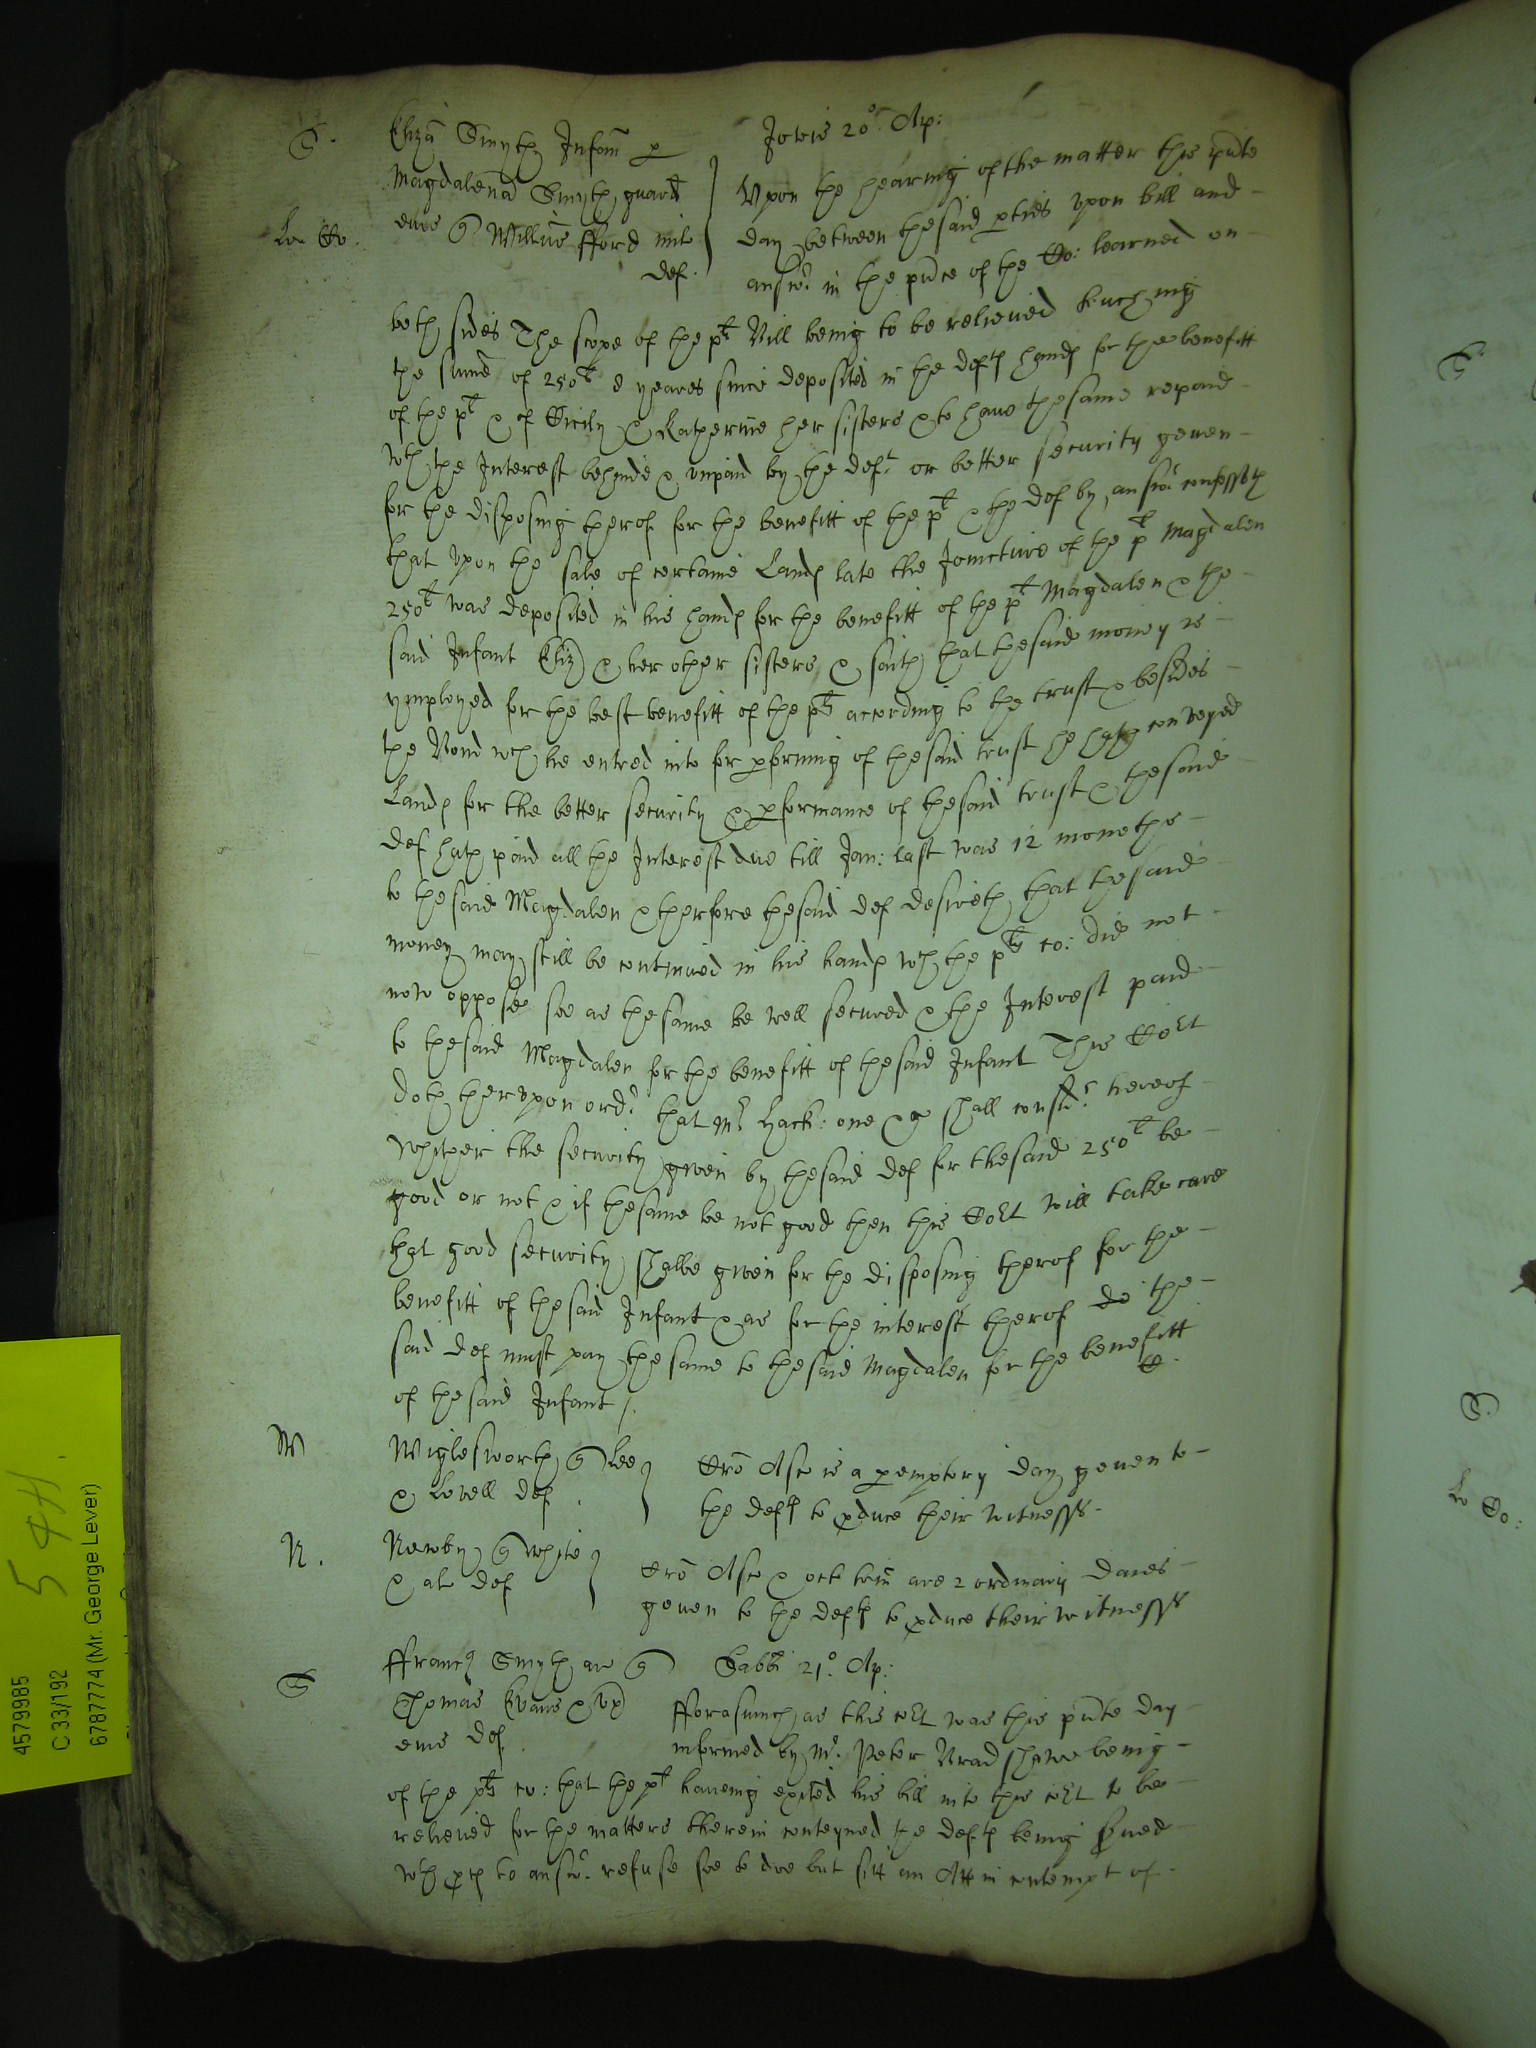 S.
Eliza Smyth Infant p
Magdalena Smyth guard
eius q Willm fford mil
def.
Lo: Co:
Jovis 20° Ap:
Upon the hearing of the matter this pnte
day between the said pties upon bill and
answ: in the pnce of the Co: learned on
both sides The scope of the plts Bill being to be relieved touching
the summe of 250l 8 yeares since deposited in the defts hands for the benefitt
of the plt & of Cicily & Katherine her sisters & to have the same repaid
wth the Interest behinde & unpaid by the deft or better security geven
for the disposing therof for the benefitt of the plt & the def by answ: confesseth
that upon the sale of certaine Lands late the Joincture of the plt Magdalen
250l was deposited in his hands for the benefitt of the plt Magdalen & the
said Infant Eliz & her other sisters & saith that the said money is
ymployed for the best benefitt of the plts according to the trust & besides
the Bond wch he entred into for pforming of the said trust he hath conveyed
Lands for the better security & pformance of the said trust & the said
def hath paid all the Interest due till Jan: last was 12 moneths
to the said Magdalen & therfore the said def desireth that the said
money may still be continued in his hands wch the plts co: did not
now oppose soe as the same be well secured & the Interest paid
to the said Magdalen for the benefitt of the said Infant This Cort
doth therupon ord: that Mr Hack: one &c shall consid: hereof
whither the security given by the said def for the said 250l be
good or not & if the same be not good then this Cort will take care
that good security shalbe given for the disposing therof for the
benefitt of the said Infant & as for the interest therof the
said def must pay the same to the said Magdalen for the benefitt
of the said Infant /.
W
Wiglesworth q Lee
& Lovell def.
Cro Asc is a pemptory day geven to
the defts to pduce their witnesses.
N.
Newby q White
& al def
Cro Asc & oct trin are 2 ordinary daies
geven to the defts to pduce their witnesses
S
ffranc Smyth ar q
Thomas Evans & ux
eius def.
Sabbi 21° Ap:
fforasmuch as this cort was this pnte day
informed by Mr. Peter Bradshawe being
of the plts co: that the plt haveing exited his bill into this cort to be
relieved for the matters therein conteyned the defts being served
wth pces to answ: refuse soe to doe but sitt an Att in contempt of
S
S.
Lo Co:
54H.
4579985
C 33/192
6787774 (Mr. George Lever)